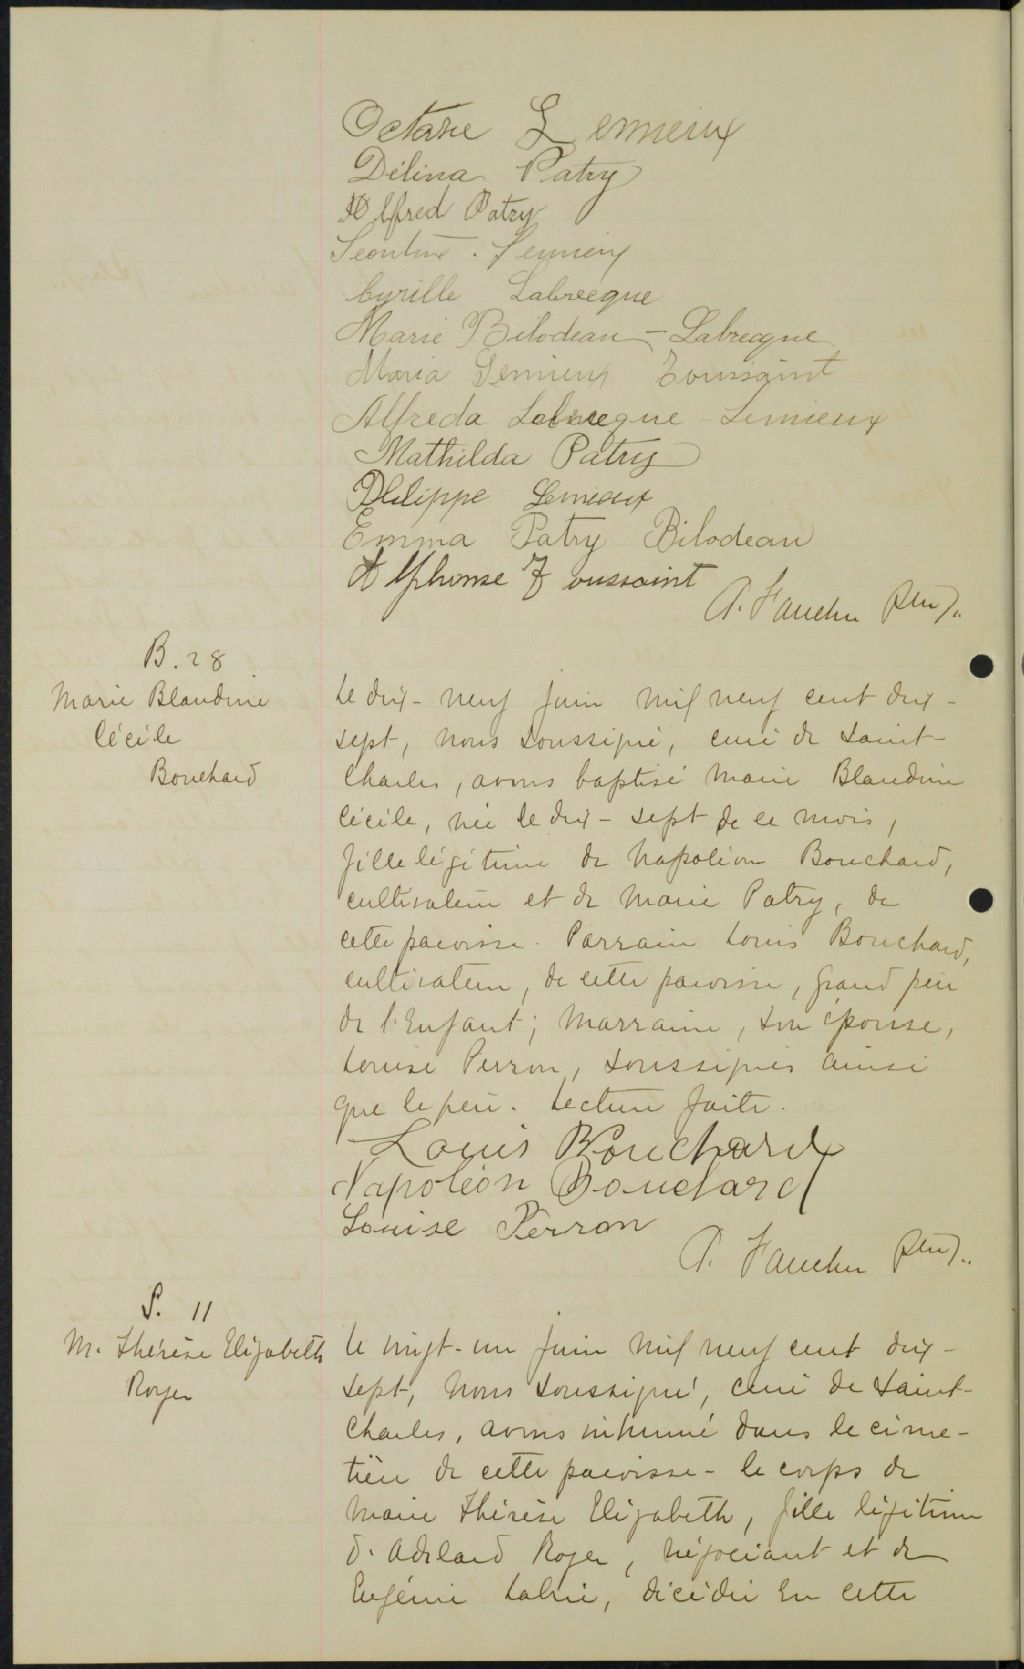 Octavie Lemieux
Délina Patry
Alfred Patry
Léontine Lemieux
Cyrille Labrecque
Marie Bilodeau - Labrecque
Maria Lemieux Toussaint
Alfreda Labrecque - Lemieux
Mathilda Patry
Philippe Lemieux
Emma Patry Bilodeau
Alphonse Toussaint
A. Faucher ptre).
B. 28
Marie Blandine
Cécile
Bouchard
Le dix-neuf juin mil neuf cent dix-
sept, nous soussigné, curé de Saint-
Charles, avons baptisé Marie Blandine
Cécile, née le dix-sept de ce mois,
fille légitime de Napoléon Bouchard,
cultivateur et de Marie Patry, de
cette paroisse. Parrain Louis Bouchard,
cultivateur, de cette paroisse, grand père
de l'Enfant; Marraine, son épouse,
Louise Perron, soussignés ainsi
que le père. Lecture faite.
Louis Bouchard
Napoléon Bouchard
Louise Perron
A. Faucher ptre).
S. 11
M. Thérèse Elizabeth
Royer
Le vingt-un juin mil neuf cent dix-
sept, nous soussigné, curé de Saint-
Charles, avons inhumé dans le cime-
tière de cette paroisse - le corps de
Marie Thérèse Elizabeth, fille légitime
d'Adélard Royer, négociant et de
Eugénie Labrie, décédée en cette